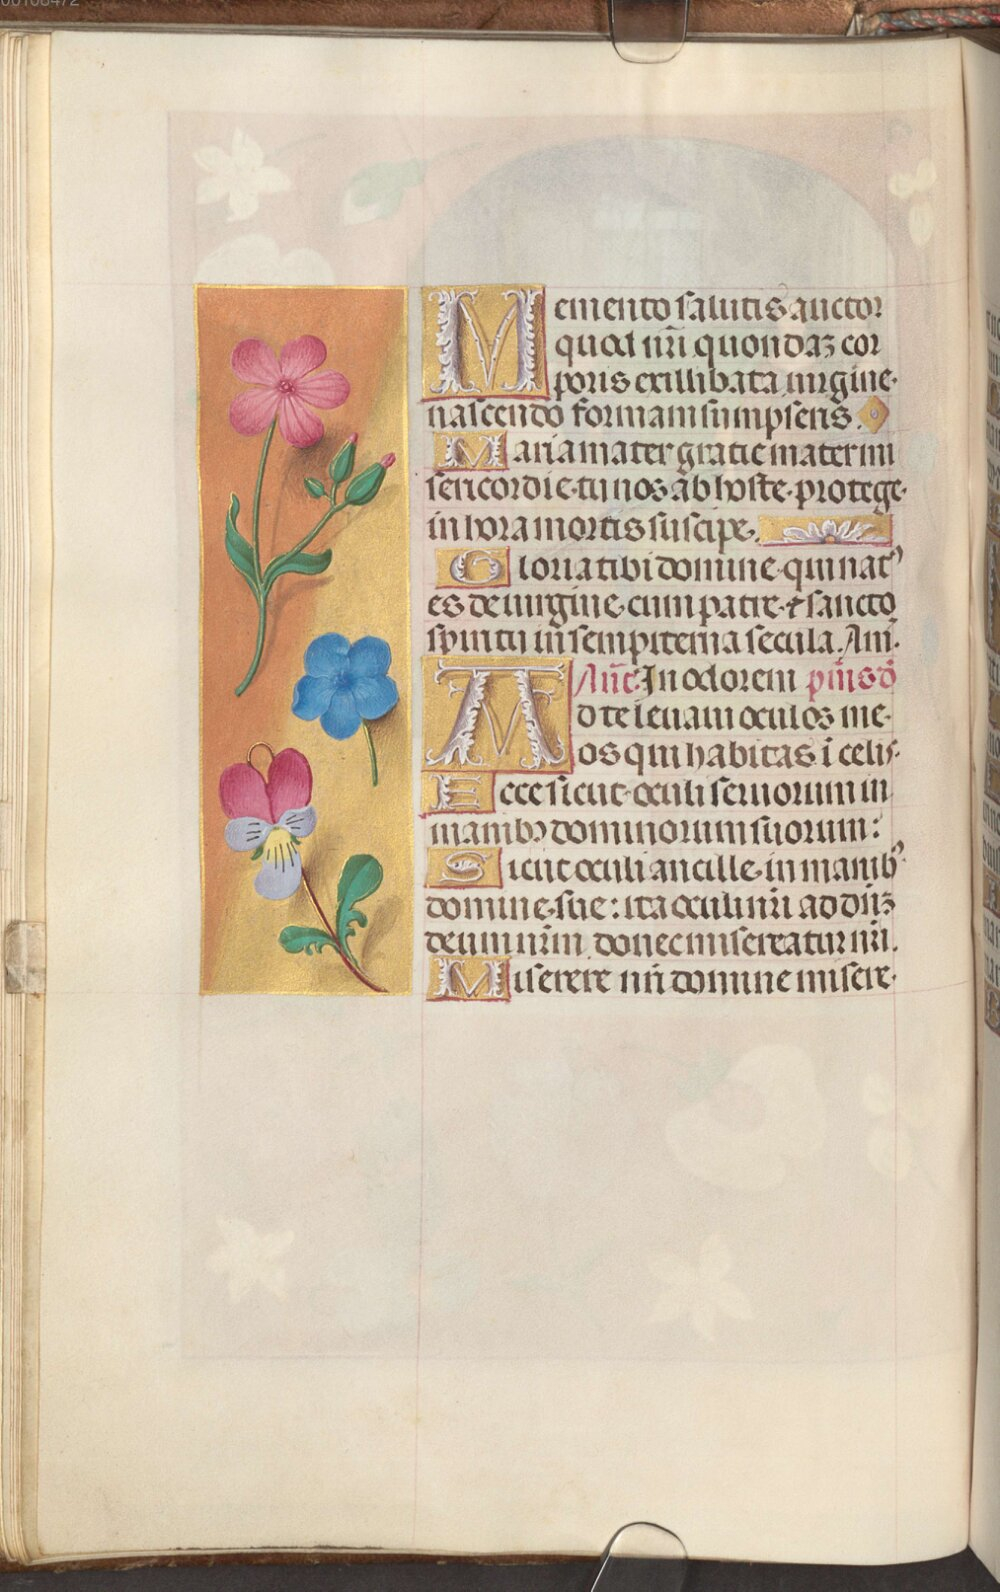 Memento salutis auctor
quod nr̄i quondaꝫ cor
poris ex illibata uirgine
nascendo formam sumpseris.
Maria mater gratie mater mi
sericordie tu nos ab hoste protege
in hora mortis suscipe.
Gloria tibi domine qui natꝰ
es de uirgine cum patre ⁊ sancto
spiritu in sempiterna secula. Am̄.
An̄e. In odorem p̄us d
Ad te leuaui oculos me
os qui habitas ī celis
Ecce sicut oculi seruorum in
manibꝰ dominorum suorum:
Sicut oculi ancille in manibꝰ
domine sue: ita oculi nr̄i ad dn̄ꝫ
deum nr̄m donec misereatur nr̄i.
Miserere nr̄i domine misere